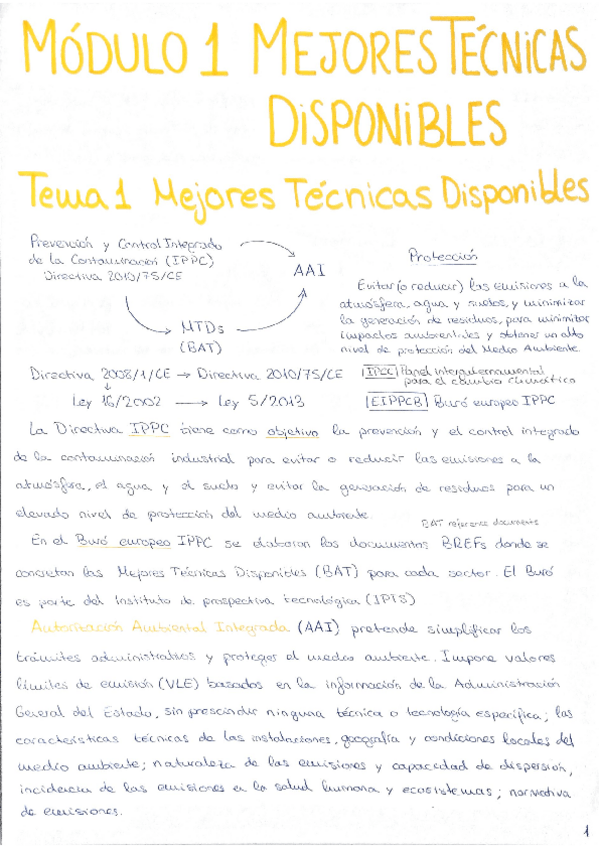 MÓDULO 1 MEJORES TÉCNICAS
DISPONIBLES
Tema 1 Mejores Técnicas Disponibles
Prevención y Control Integrado
de la Contaminación (IPPC)
Directiva 2010/75/CE
AAI
MTDs
(BAT)
Protección
Evitar (o reducir) las emisiones a la
atmósfera, agua y suelos, y minimizar
la generación de residuos, para minimizar
impactos ambientales y obtener un alto
nivel de protección del Medio Ambiente.
Directiva 2008/1/CE → Directiva 2010/75/CE
↓
Ley 16/2002 → Ley 5/2013
IPCC Panel intergubernamental
para el cambio climático
EIPPCB Buró europeo IPPC
La Directiva IPPC tiene como objetivo la prevención y el control integrado
de la contaminación industrial para evitar o reducir las emisiones a la
atmósfera, el agua y el suelo y evitar la generación de residuos para un
elevado nivel de protección del medio ambiente.
BAT reference documents
En el Buró europeo IPPC se elaboran los documentos BREFs donde se
concretan las Mejores Técnicas Disponibles (BAT) para cada sector. El Buró
es parte del Instituto de prospectiva tecnológica (IPTS)
Autorización Ambiental Integrada (AAI) pretende simplificar los
trámites administrativos y proteger el medio ambiente. Impone valores
límites de emisión (VLE) basados en la información de la Administración
General del Estado, sin prescindir ninguna técnica o tecnología específica; las
características técnicas de las instalaciones, geografía y condiciones locales del
medio ambiente; naturaleza de las emisiones y capacidad de dispersión,
incidencia de las emisiones en la salud humana y ecosistemas; normativa
de emisiones.
1